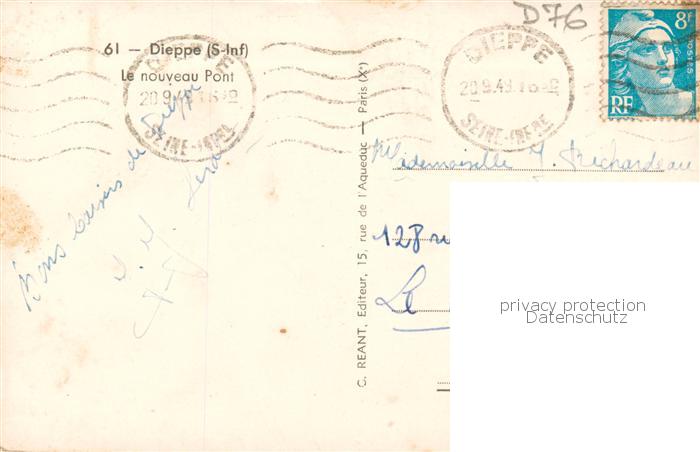 D76
61 - Dieppe (S-Inf)
Le nouveau Pont
DIEPPE
20.9.49
SEINE-INFRE
DIEPPE
20.9.49
SEINE-INFRE
8F
POSTES
RF
Bons baisers de Dieppe
C. REANT, Editeur, 15, rue de l'Aqueduc — Paris (Xe)
Mademoiselle J. Richardeau
128
Le
privacy protection
Datenschutz